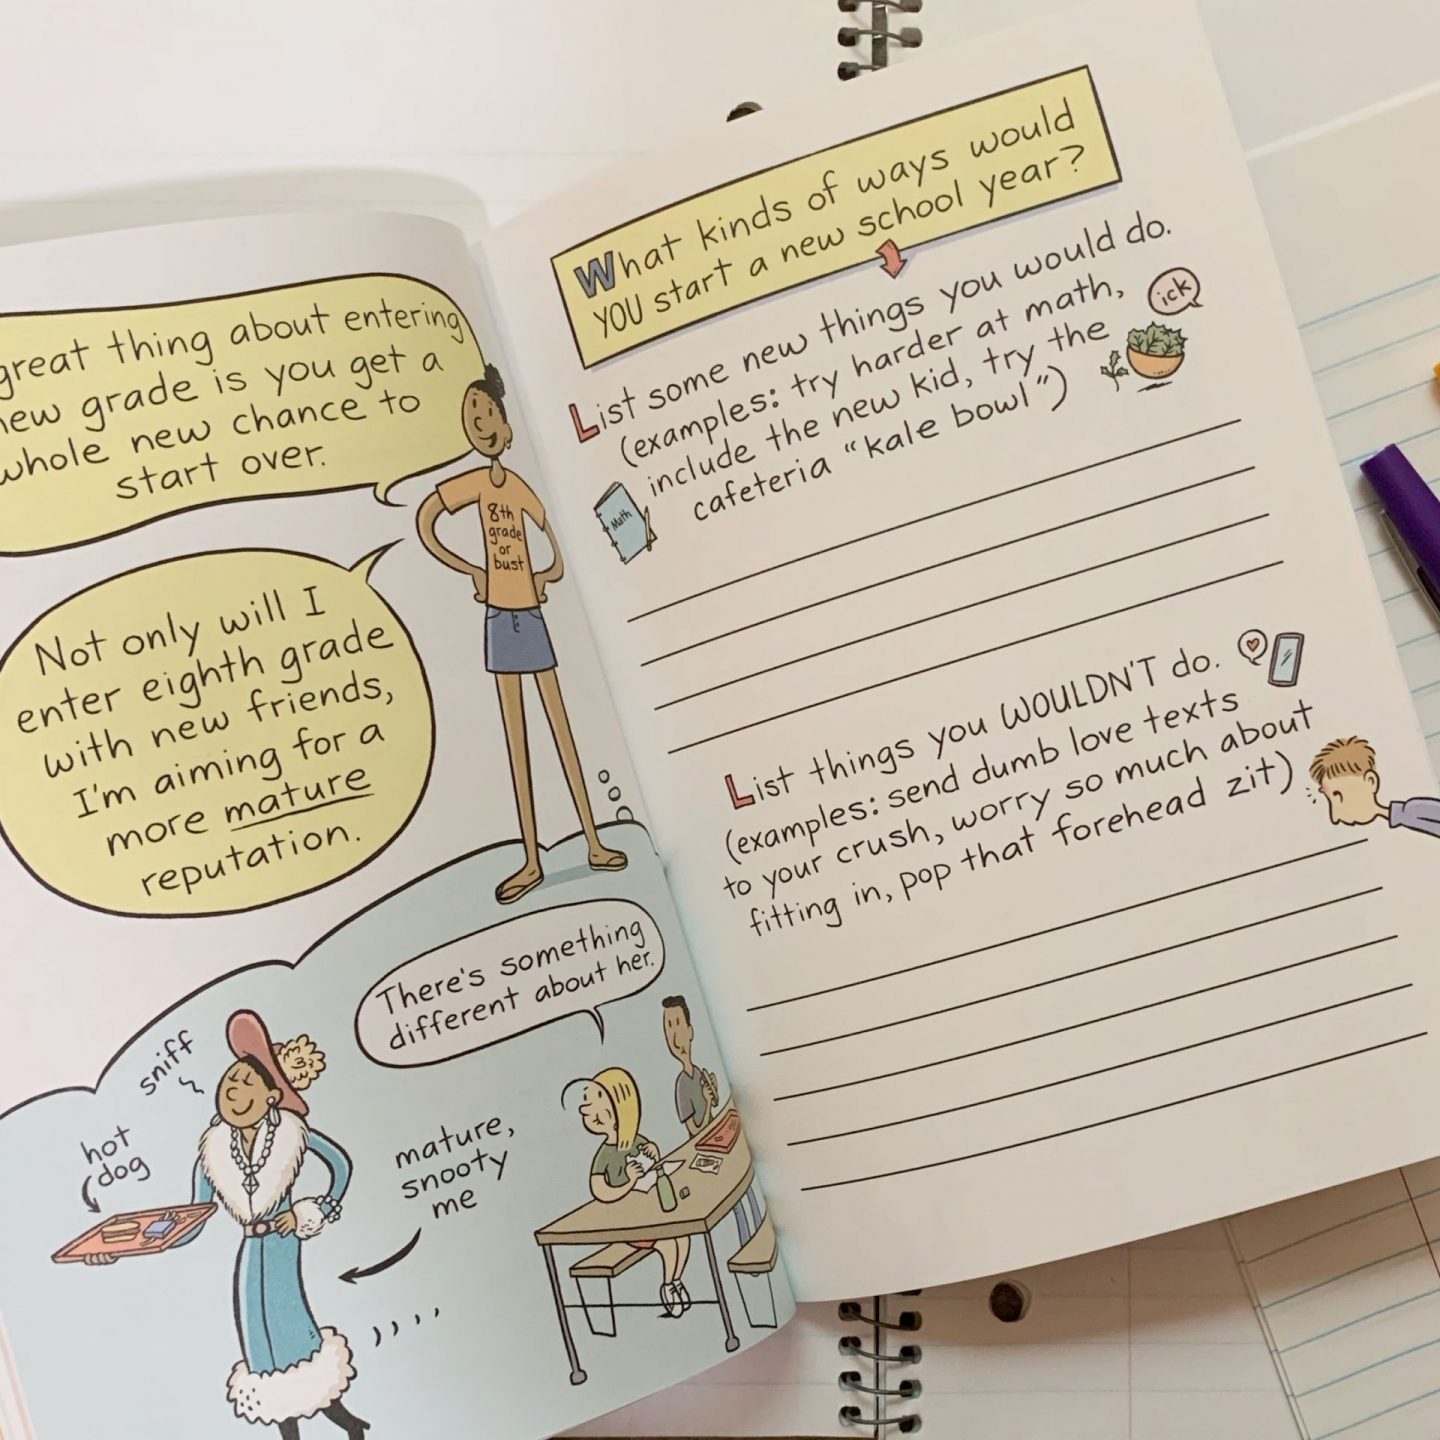 great thing about entering
new grade is you get a
whole new chance to
start over.
8th
grade
or
bust
Not only will I
enter eighth grade
with new friends,
I'm aiming for a
more mature
reputation.
There's something
different about her.
sniff
hot
dog
mature,
snooty
me
What kinds of ways would
YOU start a new school year?
List some new things you would do.
(examples: try harder at math,
include the new kid, try the
cafeteria "kale bowl")
ick
Math
List things you WOULDN'T do.
(examples: send dumb love texts
to your crush, worry so much about
fitting in, pop that forehead zit)